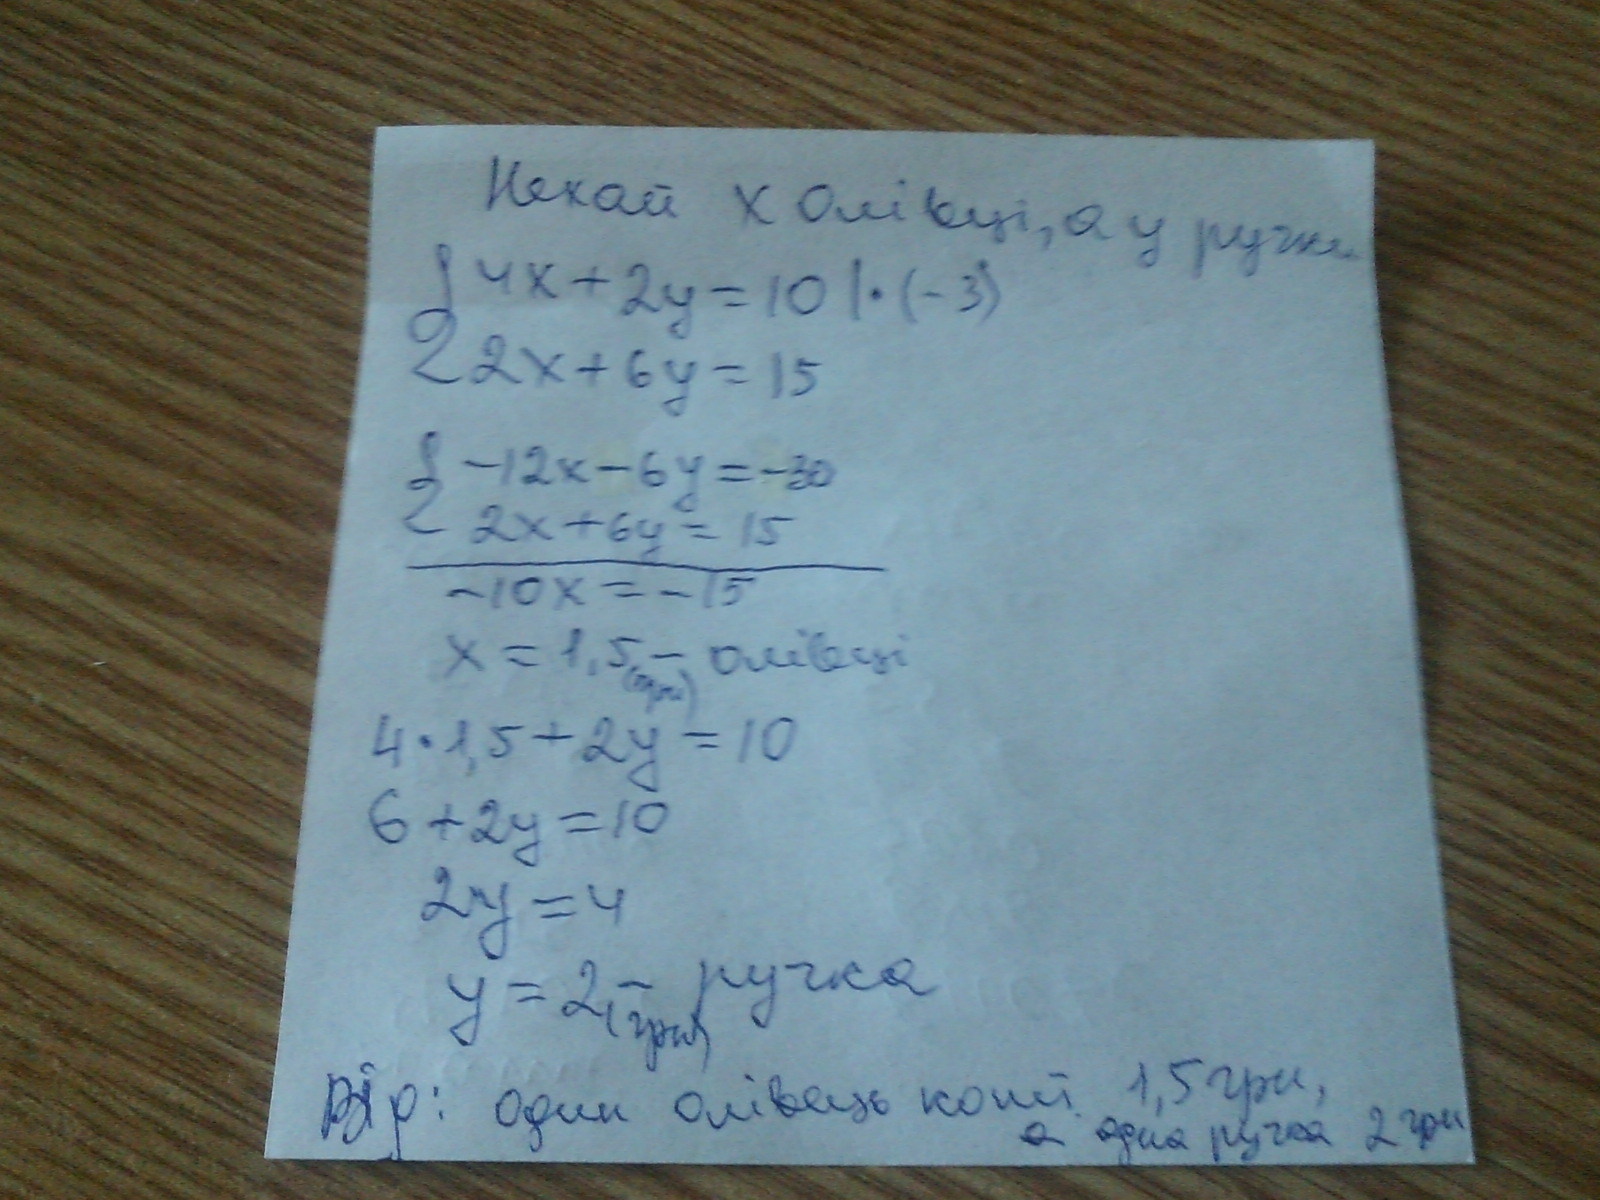 Нехай x олівці, а y ручки
{ 4x + 2y = 10 | · (-3)
2x + 6y = 15
{ -12x - 6y = -30
2x + 6y = 15
-10x = -15
x = 1,5 (грн) - олівці
4 · 1,5 + 2y = 10
6 + 2y = 10
2y = 4
y = 2 (грн) - ручка
Від: один олівець кошт. 1,5 грн,
а одна ручка 2 грн